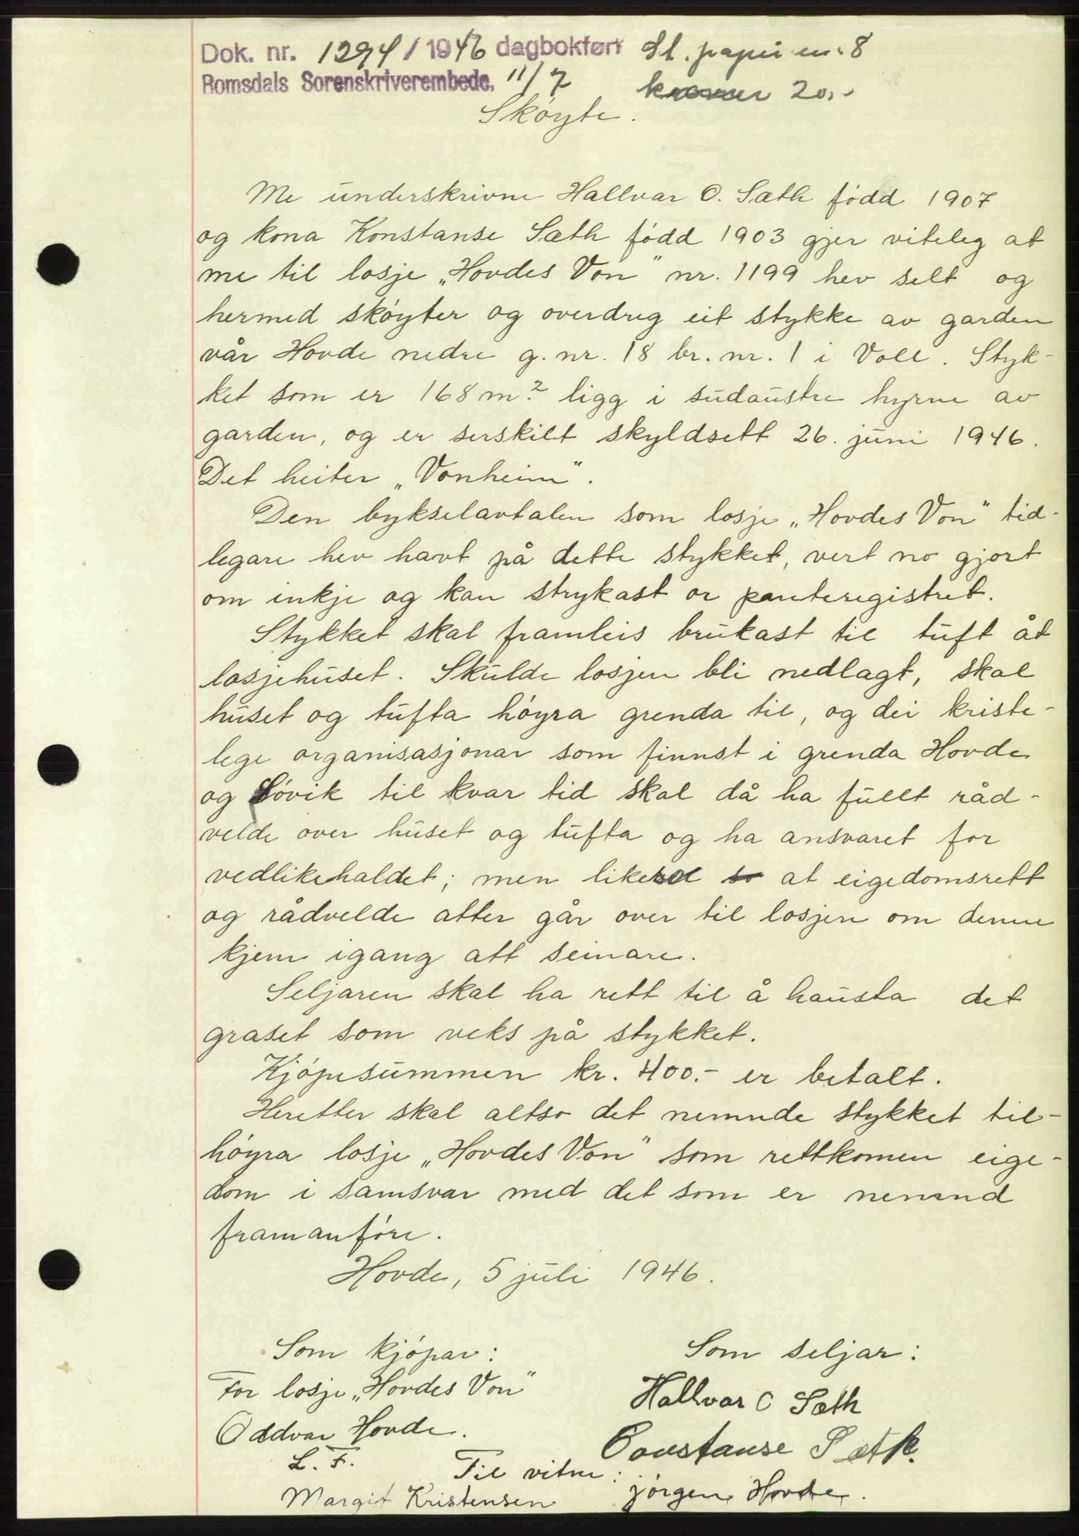 Dok. nr. 1294/1946 dagbokført St. papir en. 8
Romsdals Sorenskriverembede, 11/7 kroner 20.-
Skøyte.
Me underskrivne Hallvar O. Sæth fødd 1907
og kona Konstanse Sæth fødd 1903 gjer viteleg at
me til losje „Hovdes Von" nr. 1199 hev selt og
hermed skøyter og overdreg eit stykke av garden
vår Hovde nedre g. nr. 18 br. nr. 1 i Voll. Styk-
ket som er 168 m.² ligg i sudaustre hyrne av
garden, og er serskilt skyldsett 26. juni 1946.
Det heiter „Vonheim".
Den bykselavtalen som losje „Hovdes Von" tid-
legare hev havt på dette stykket, vert no gjort
om inkje og kan strykast or panteregistret.
Stykket skal framleis brukast til tuft åt
losjehuset. Skulde losjen bli nedlagt, skal
huset og tufta høyra grenda til, og dei kriste-
lege organisasjonar som finnst i grenda Hovde
og Søvik til kvar tid skal då ha fullt råd-
velde over huset og tufta og ha ansvaret for
vedlikehaldet; men likeso so at eigedomsrett
og rådvelde atter går over til losjen om denne
kjem igang att seinare.
Seljaren skal ha rett til å hausta det
graset som veks på stykket.
Kjøpesummen kr. 400.- er betalt.
Heretter skal altso det nemnde stykket til-
høyra losje „Hovdes Von" som rettkomen eige-
dom i samsvar med det som er nemnd
framanføre.
Hovde, 5 juli 1946.
Som kjøpar: Som seljar:
For losje „Hovdes Von" Hallvar O Sæth
Oddvar Hovde. Constanse Sæth.
L. F. Til vitne:
Margit Kristensen Jørgen Hovde.